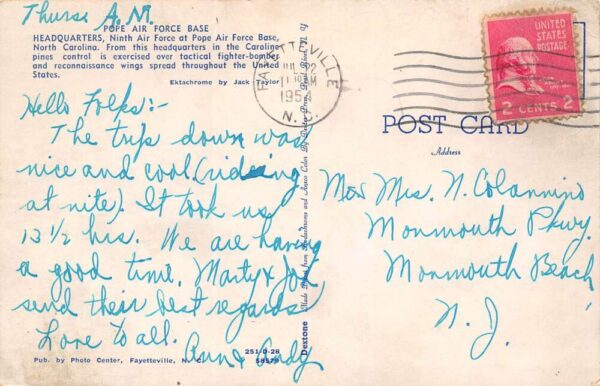 Thurs. A.M.
POPE AIR FORCE BASE
HEADQUARTERS, Ninth Air Force at Pope Air Force Base,
North Carolina. From this headquarters in the Caroline
pines control is exercised over tactical fighter-bomber
and reconnaissance wings spread throughout the United
States.
Ektachrome by Jack Taylor
Hello Folks:-
The trip down was
nice and cool (riding
at nite). It took us
13 1/2 hrs. We are having
a good time. Marty & Joe
send their best regards
Love to all.
Ann & Andy
251-D-28
58579
Pub. by Photo Center, Fayetteville, N. C.
Dextone
Made Direct from Kodachrome and Ansco Color By Dexter Press, Pearl River, N. Y.
FAYETTEVILLE
JUL 22
AM
1954
N. C.
UNITED
STATES
POSTAGE
2 CENTS 2
POST CARD
Address
M & Mrs. N. Colannino
Monmouth Pkwy.
Monmouth Beach
N. J.